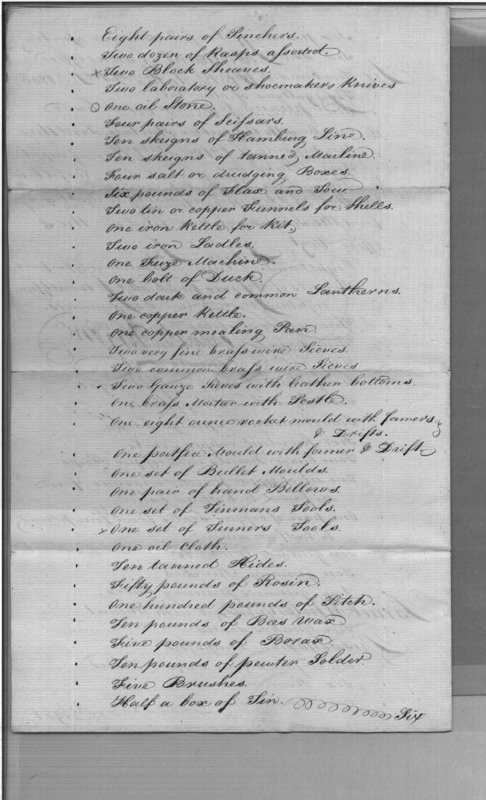 Eight pairs of Pinchers.
Two dozen of Rasps assorted.
x Two Block Sheaves.
Two laboratory or shoemakers Knives
One oil Stone.
Four pairs of Scissars.
Ten skeigns of Hamburg Line.
Ten skeigns of tanned Marline.
Four salt or drudging Boxes.
Six pounds of Flax and Tow.
Two tin or copper Funnels for Shells.
One iron Kettle for Kit.
Two iron Ladles.
One Fuze Machine.
One bolt of Duck.
Two dark and common Lantherns.
One copper Kettle.
One copper mealing Pan.
Two very fine brass wire Sieves.
Two common brass wire Sieves
Two Gauze Sieves with leather bottoms.
One brass Mortar with Pestle.
One eight ounce rocket mould with famers
& Drifts.
One portfire Mould with former & Drift
One set of Bullet Moulds.
One pair of hand Bellows.
One set of Tinmans Tools.
x One set of Turners Tools.
One oil Cloth.
Ten tanned Hides.
Fifty pounds of Rosin.
One hundred pounds of Pitch.
Ten pounds of Bees Wax
Five pounds of Borax.
Ten pounds of pewter Solder
Five Brushes.
Half a box of Tin.
Six